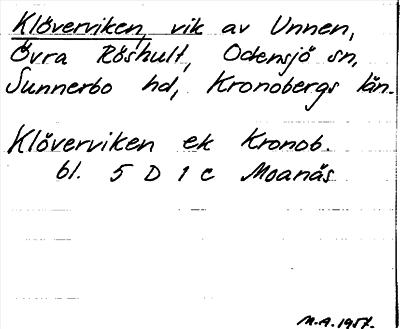 Klöverviken, vik av Unnen,
Övra Röshult, Odensjö sn,
Sunnerbo hd, Kronobergs län.
Klöverviken ek Kronob.
bl. 5 D 1 c Moanäs
M.A. 1957.